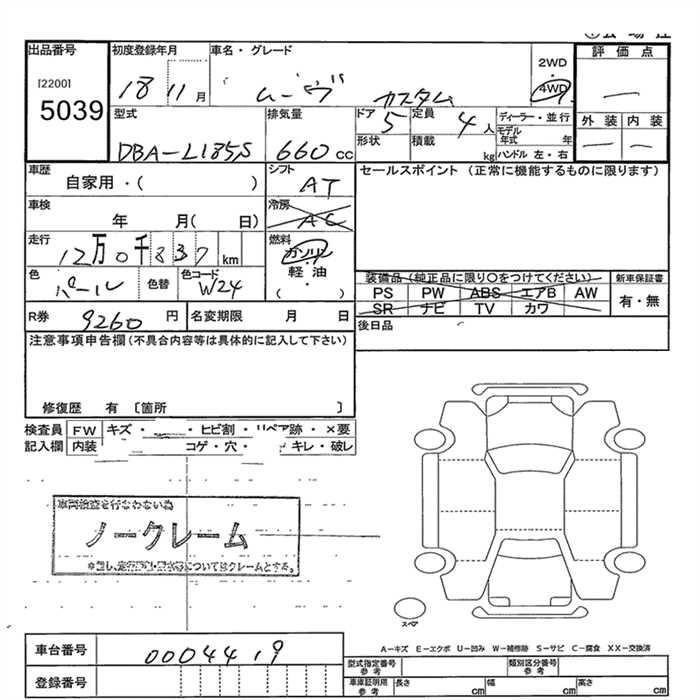 出品番号 初度登録年月 車名・グレード 2WD・4WD 評価点
[2200] 5039 18 11月 ムーヴ カスタム —
型式 排気量 ドア 定員 ディーラー・並行 外装 内装
DBA-L185S 660cc 5 4人 モデル年式 年 — —
形状 積載 kg ハンドル 左・右
車歴 シフト セールスポイント（正常に機能するものに限ります）
自家用・（ ） AT
車検 冷房
年 月（ 日） AC
走行 燃料
12万0千837km ガソリン・軽油
色 色替 色コード （ ） 装備品（純正品に限り○をつけてください） 新車保証書
パール W24 PS PW ABS エアB AW 有・無
SR ナビ TV カワ
R券 9260円 名変期限 月 日 後日品
注意事項申告欄（不具合内容等は具体的に記入して下さい）
修復歴 有 〔箇所 〕
検査員 FW キズ・ ・ヒビ割・リペア跡・×要
記入欄 内装 コゲ・穴・ キレ・破レ
車両検査を行わない為
ノークレーム
スペア
A－キズ E－エクボ U－凹み W－補修跡 S－サビ C－腐食 XX－交換済
車台番号 0004419 型式指定番号 参考 類別区分番号 参考
登録番号 車庫証明用 参考 長さ cm 幅 cm 高さ cm